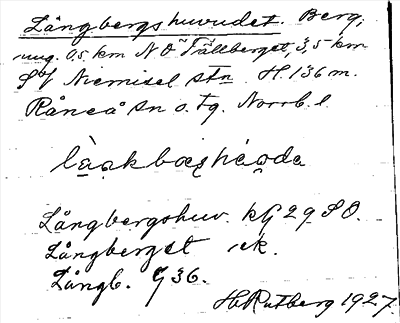 Långbergshuvudet. Berg,
omg. 0,5 km NÖ Tällberget, 3,5 km
S of Niemisel stn. H. 136 m.
Råneå sn o. tg. Norrb. l.
Långbergshuv. kG 29 SO.
Långberget ek.
Långb. G 36.
H. Rutberg 1927.